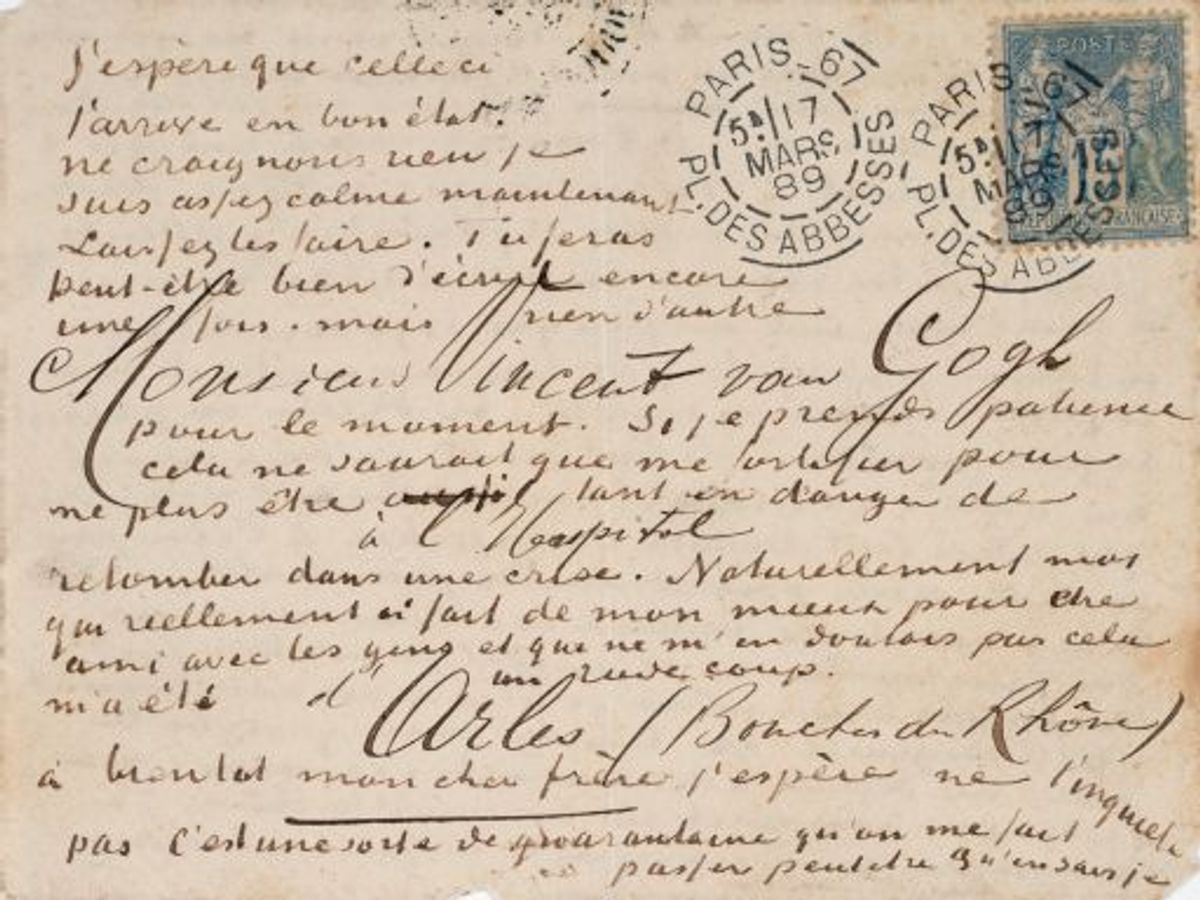 j'espère que celle ci
t'arrive en bon état.
ne craignons rien je
suis assez calme maintenant
Laissez les faire. Tu feras
peut-etre bien d'écrire encore
une fois. mais rien d'autre
Monsieur Vincent van Gogh
pour le moment. Si je prends patience
cela ne saurait que me fortifier pour
ne plus être aussi tant en danger de
à l'Hospital
retomber dans une crise. Naturellement moi
qui reellement ai fait de mon mieux pour etre
ami avec les gens et que ne m'en doutais pas cela
m'a été un rude coup.
d'Arles (Bouches du Rhône)
à bientot mon cher frère j'espère ne t'inquiete
pas c'est une sorte de quarantaine qu'on me fait
passer peutetre qu'en sais je
PARIS - 67
5E 17
MARS
89
PL. DES ABBESSES
PARIS - 67
17
MARS
89
PL. DES ABBESSES
POSTE
15
REPUBLIQUE FRANÇAISE